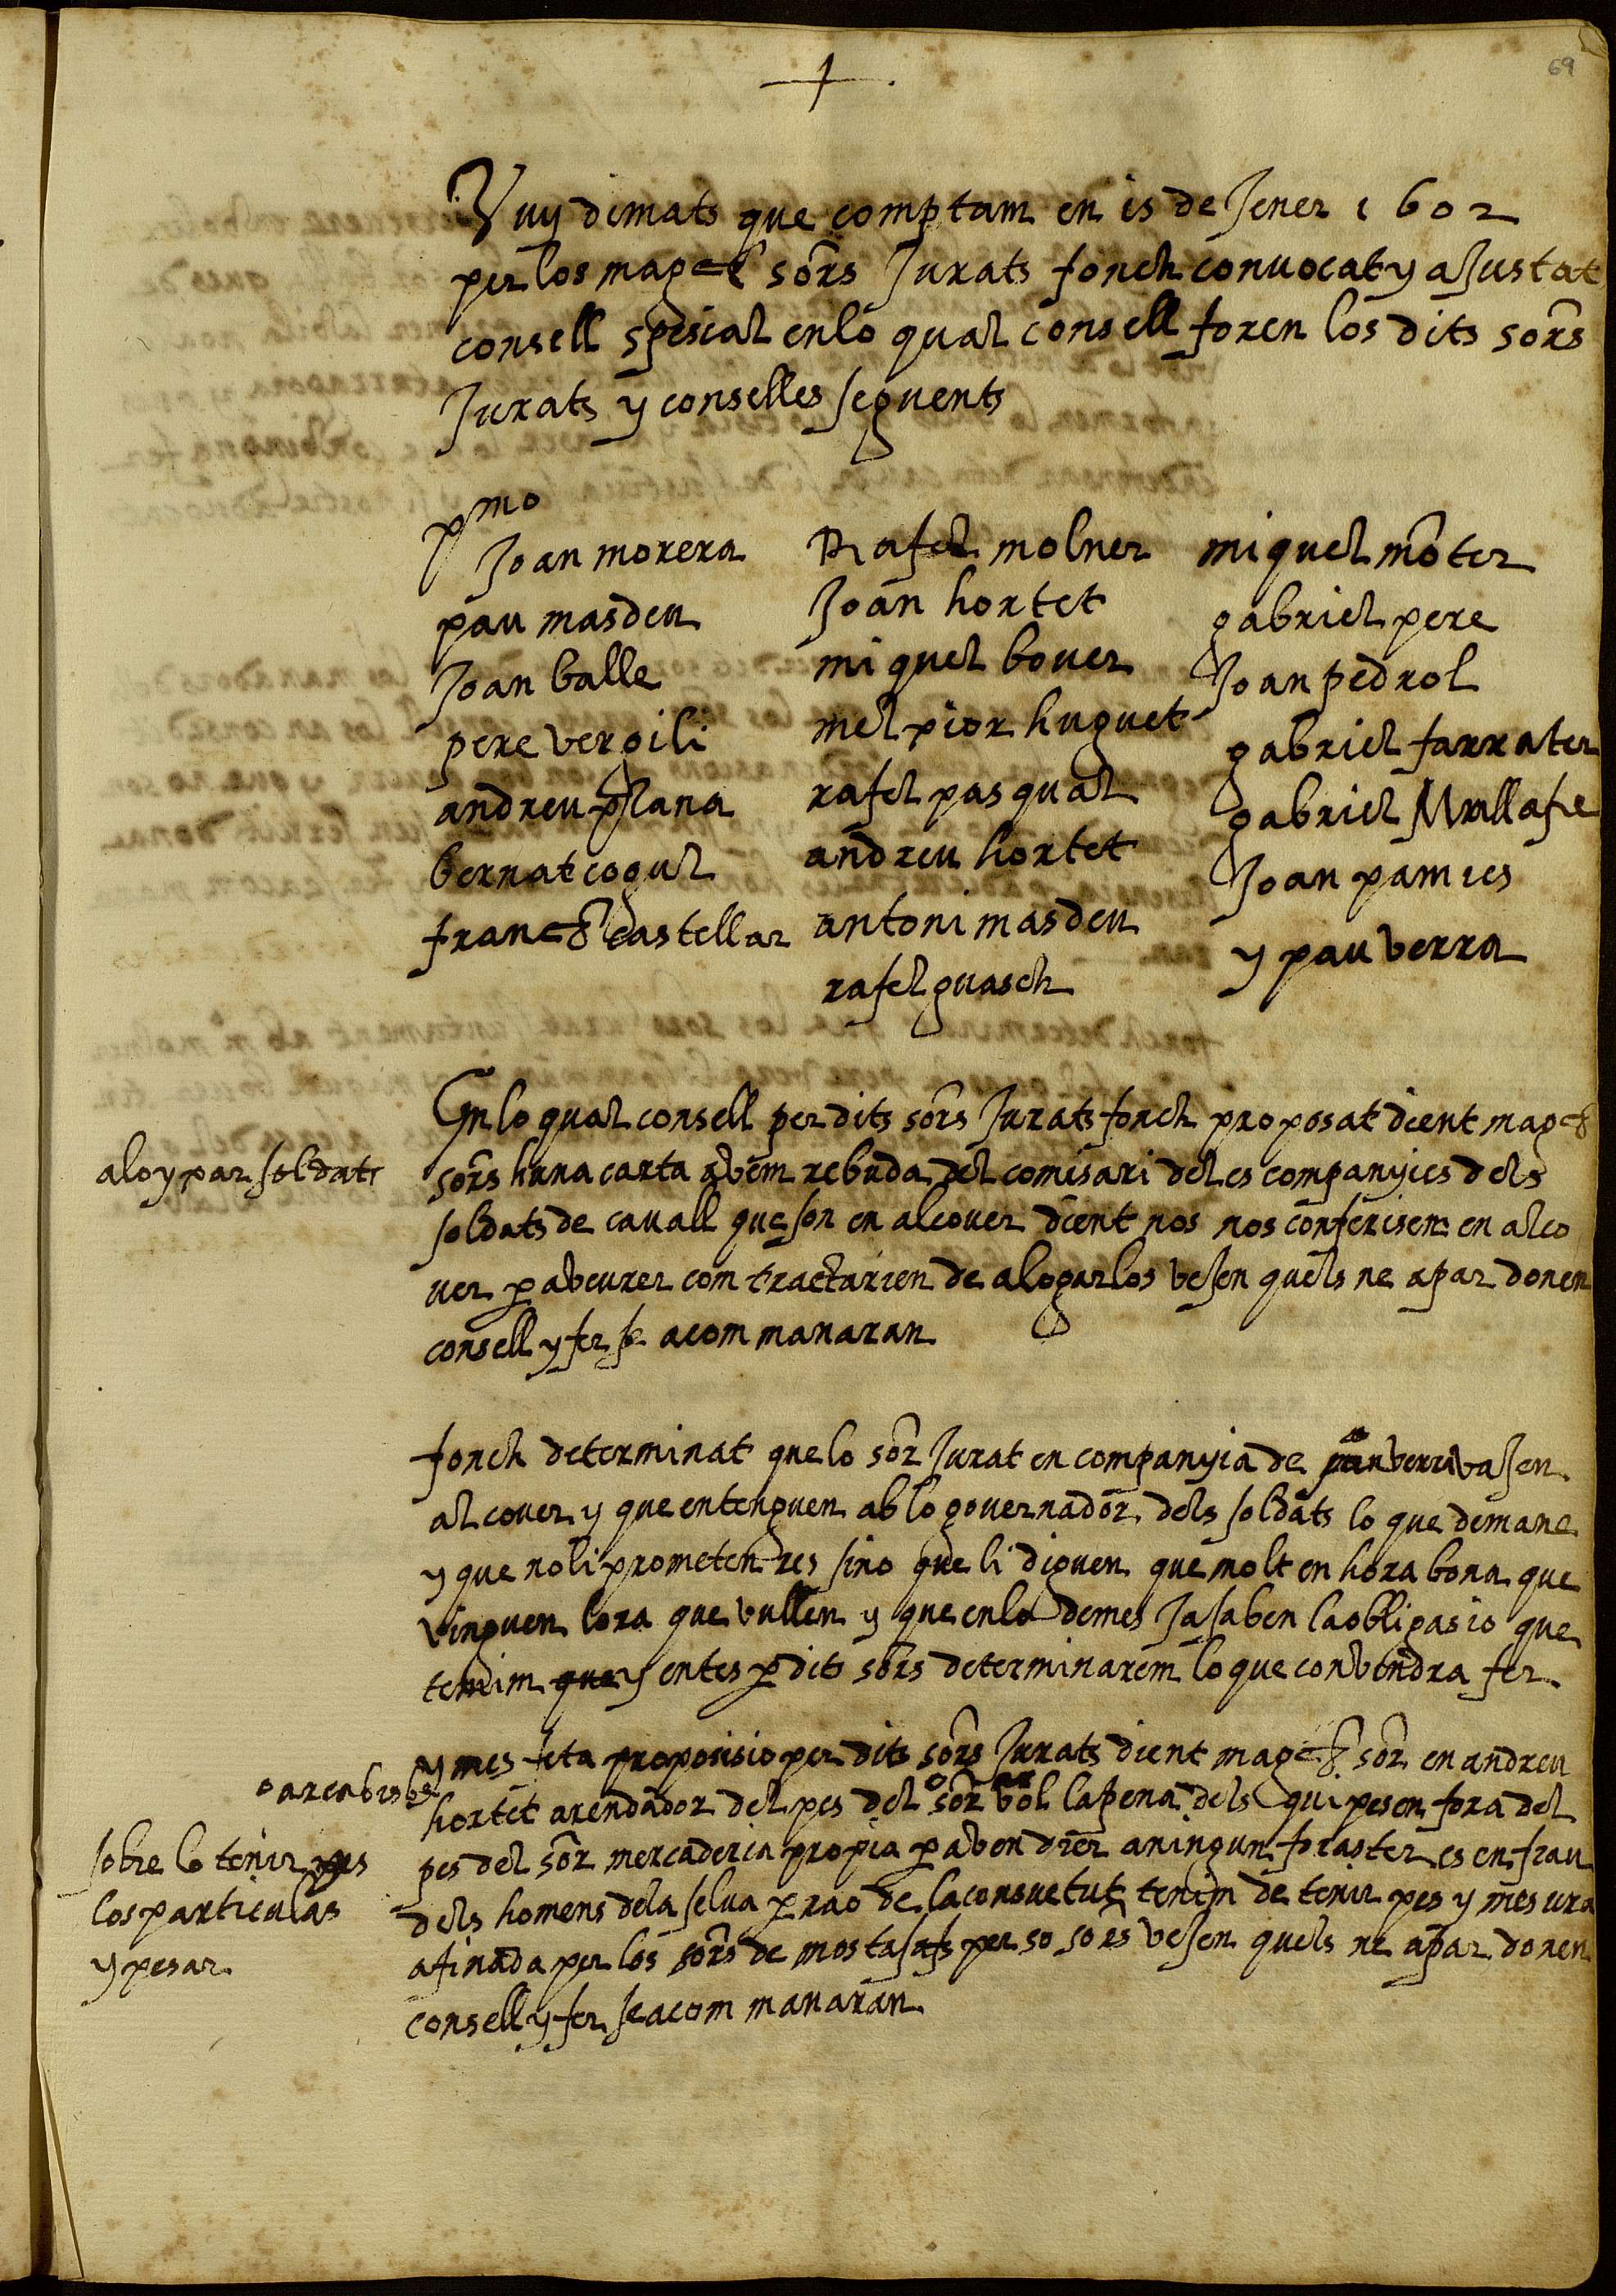 69
Vuy dimats que comptam en 15 de Jener 1602
per los magchs sors Jurats fonch convocat y aJustat
consell spesial en lo qual consell foren los dits sors
Jurats y conselles seguents
pmo
Joan morera
pau masdeu
Joan balle
pere vergili
andreu plana
bernat cogul
franch castellar
Rafel molner
Joan hortet
miquel bover
melxior huguet
rafel pasqual
andreu hortet
antoni masdeu
rafel guasch
miquel moter
gabriel pere
Joan pedrol
gabriel farrater
gabriel Mallafre
Joan pamies
y pau verra
En lo qual consell per dits sors Jurats fonch proposat dient magchs
alogar soldats
sors huna carta avem rebuda del comisari de les companyies dels
soldats de cavall que son en alcover dient nos nos conferisem en alco
ver per a veurer com tractarien de alogarlos vesen quels ne apar donen
consell y fer se a com manaran
fonch determinat que lo sor Jurat en companyia de pau verra vasen
alcover y que entenguen ab lo governador dels soldats lo que demane
y que no li prometen res sino que li diguen que molt en hora bona que
vinguen lora que vullen y que en lo demes Ja saben la obligasio que
tenim que y entes per dits sors determinarem lo que convendra fer
y mes feta proposisio per dits sors Jurats dient magchs sor en andreu
o arcabisbe
hortet arendador del pes del sor vol la pena dels qui pesen fora del
sobre lo tenir pes
los particulas
y pesar
pes del sor mercaderia propia per a vendrer a ningun foraster es en frau
dels homens de la selva per rao de la consuetut tenim de tenir pes y mesura
afinada per los sors de mostasafs per so sors vesen quels ne apar donen
consell y fer se a com manaran